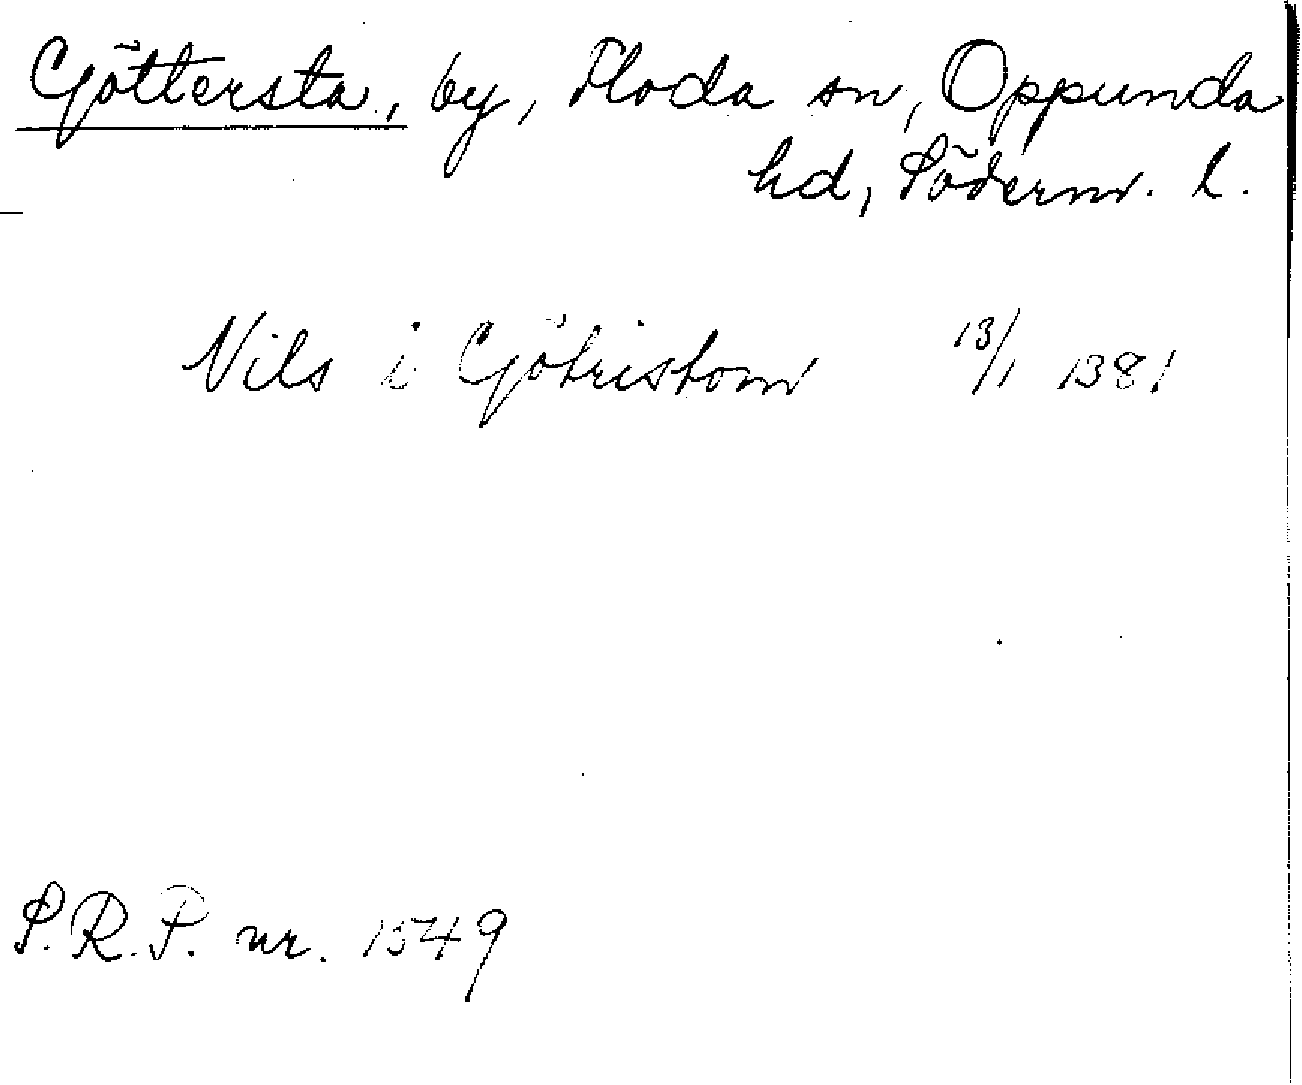 Göttersta, by, Floda sn, Oppunda
hd, Söderm. l.
Nils i Götristom 13/1 1381
S.R.P. nr. 1549